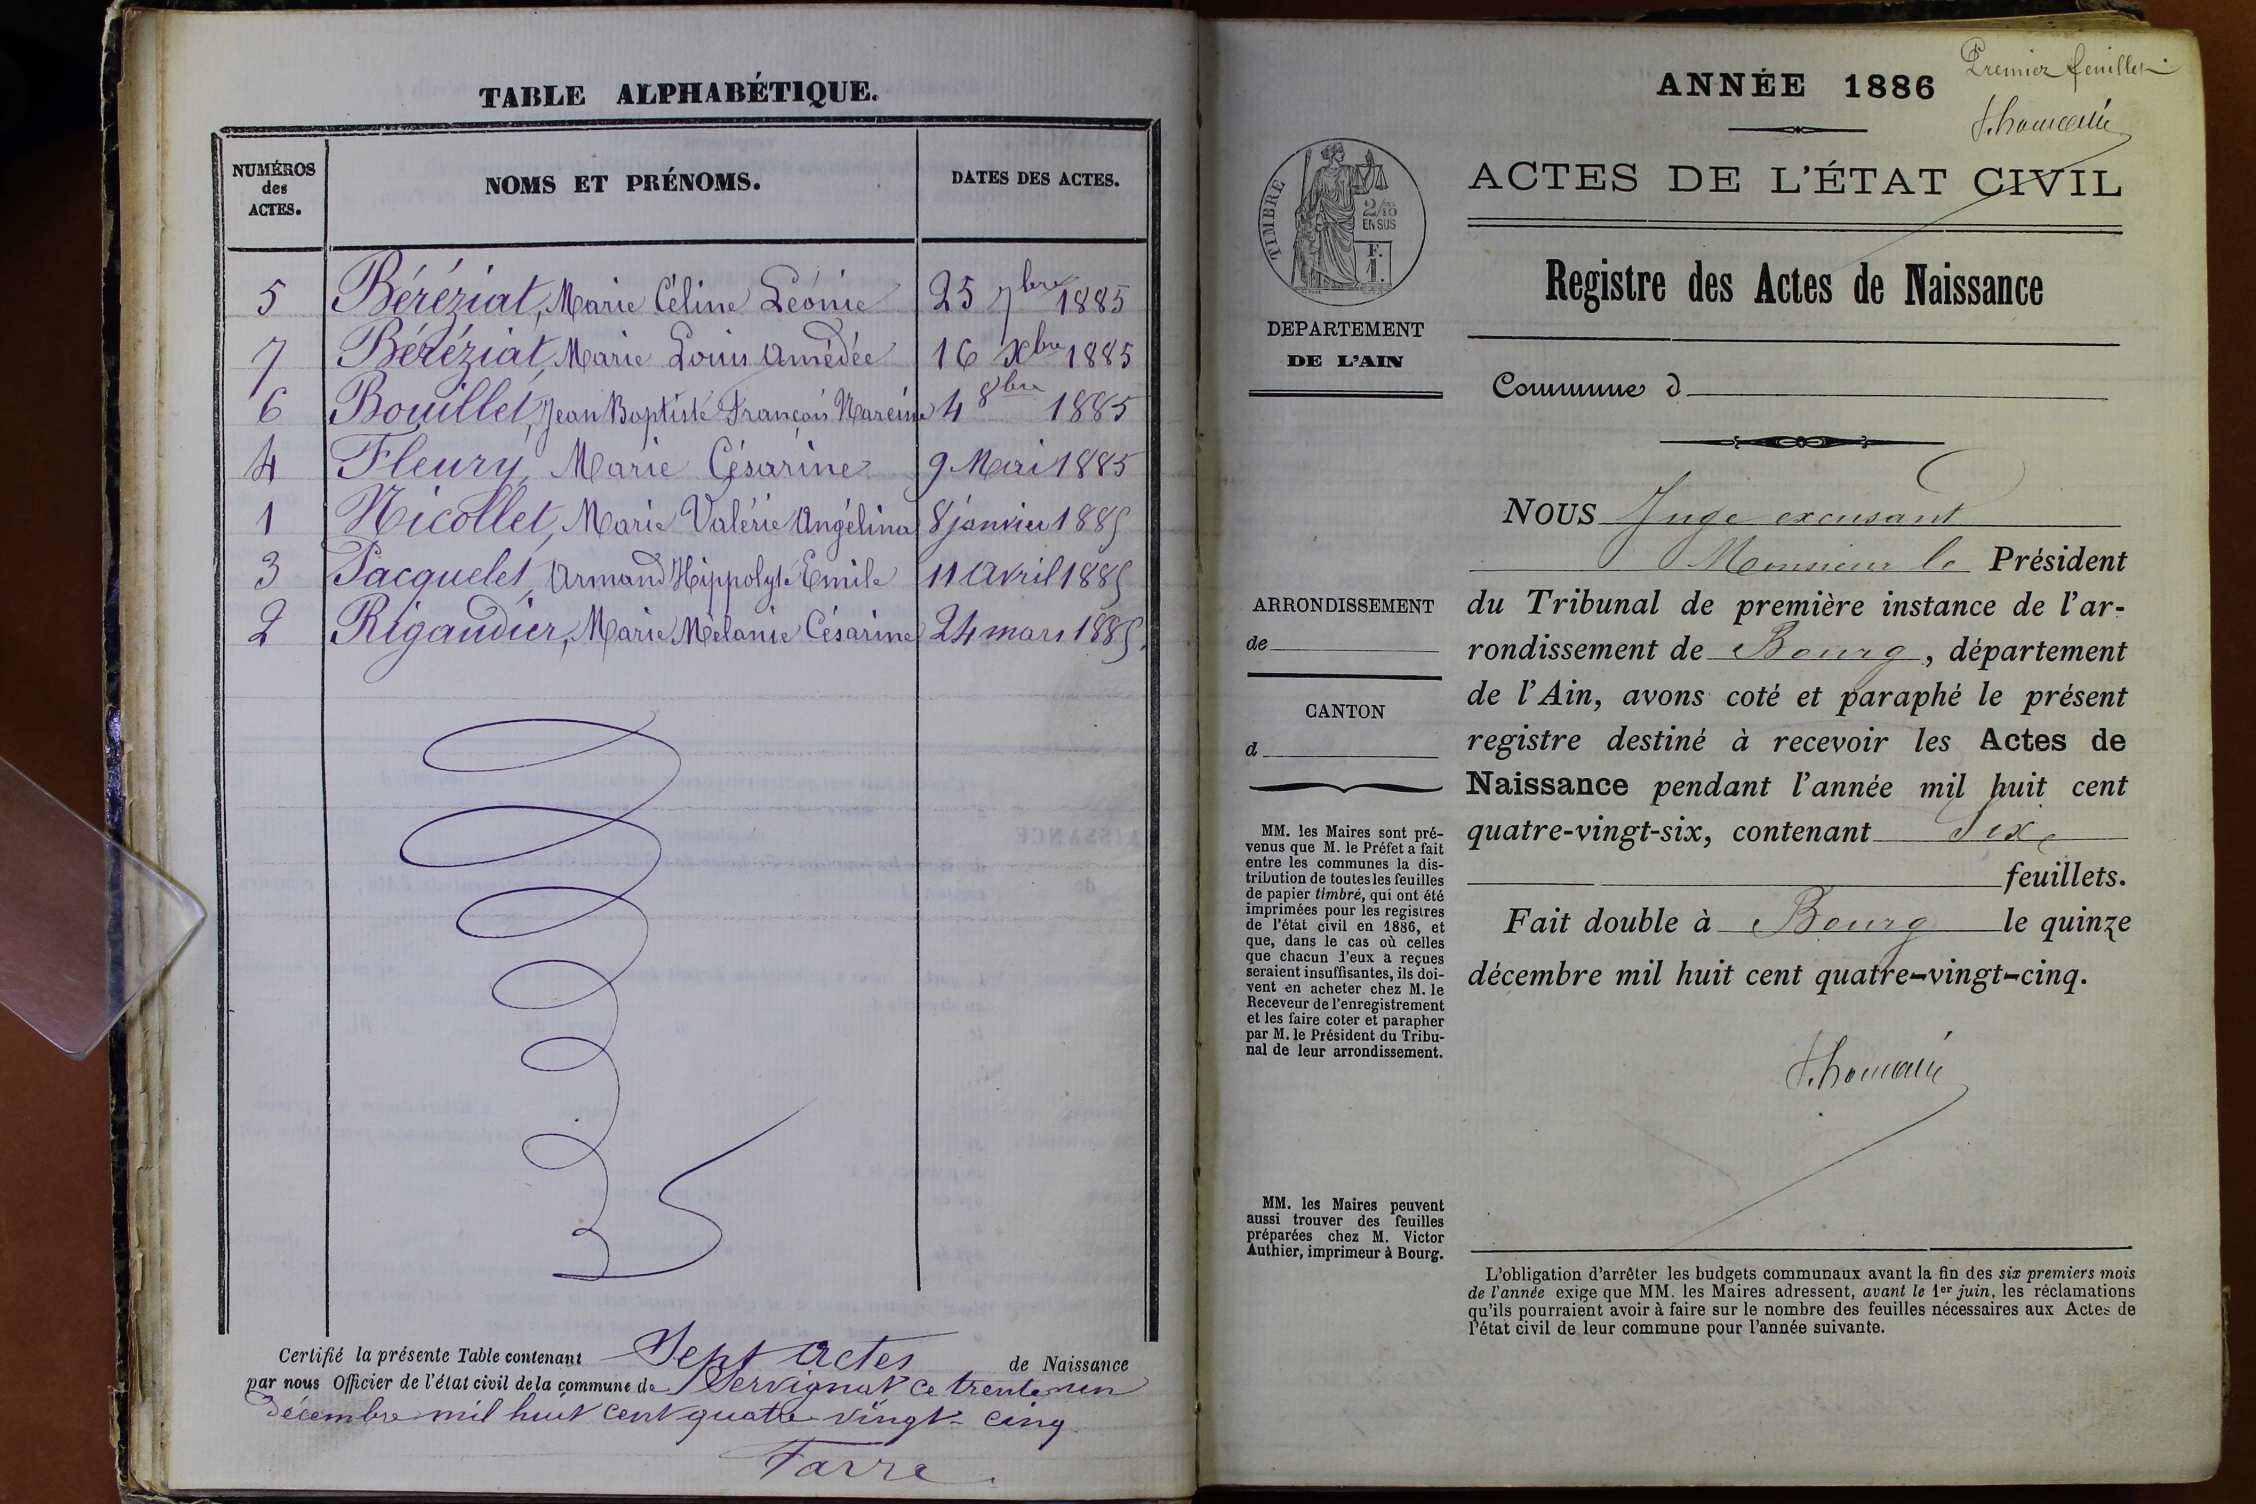 TABLE ALPHABÉTIQUE.
NUMÉROS
des
ACTES.
NOMS ET PRÉNOMS.
DATES DES ACTES.
5 Béréziat, Marie Céline Léonie 25 7bre 1885
7 Béréziat, Marie Louis Amédée 16 Xbre 1885
6 Bouillet, Jean Baptiste François 4 8bre 1885
4 Fleury, Marie Césarine 9 Mai 1885
1 Nicollet, Marie Valérie Angélina 8 janvier 1885
3 Pacquelet, Armand Hippolyte Emile 11 Avril 1885
2 Rigaudier, Marie Mélanie Césarine 24 mars 1885.
Certifié la présente Table contenant Sept Actes de Naissance
par nous Officier de l'état civil de la commune de Servignat ce trente un
décembre mil huit cent quatre vingt-cinq
Farre
Premier feuillet
ANNÉE 1886
ACTES DE L'ÉTAT CIVIL
TIMBRE
2/10
EN SUS
F.
1.
Registre des Actes de Naissance
DEPARTEMENT
DE L'AIN
Commune d
NOUS Juge excusant
Monsieur le Président
du Tribunal de première instance de l'ar-
rondissement de Bourg, département
de l'Ain, avons coté et paraphé le présent
registre destiné à recevoir les Actes de
Naissance pendant l'année mil huit cent
quatre-vingt-six, contenant Six
feuillets.
Fait double à Bourg le quinze
décembre mil huit cent quatre-vingt-cinq.
ARRONDISSEMENT
de
CANTON
d
MM. les Maires sont pré-
venus que M. le Préfet a fait
entre les communes la dis-
tribution de toutes les feuilles
de papier timbré, qui ont été
imprimées pour les registres
de l'état civil en 1886, et
que, dans le cas où celles
que chacun d'eux a reçues
seraient insuffisantes, ils doi-
vent en acheter chez M. le
Receveur de l'enregistrement
et les faire coter et parapher
par M. le Président du Tribu-
nal de leur arrondissement.
MM. les Maires peuvent
aussi trouver des feuilles
préparées chez M. Victor
Authier, imprimeur à Bourg.
L'obligation d'arrêter les budgets communaux avant la fin des six premiers mois
de l'année exige que MM. les Maires adressent, avant le 1er juin, les réclamations
qu'ils pourraient avoir à faire sur le nombre des feuilles nécessaires aux Actes de
l'état civil de leur commune pour l'année suivante.